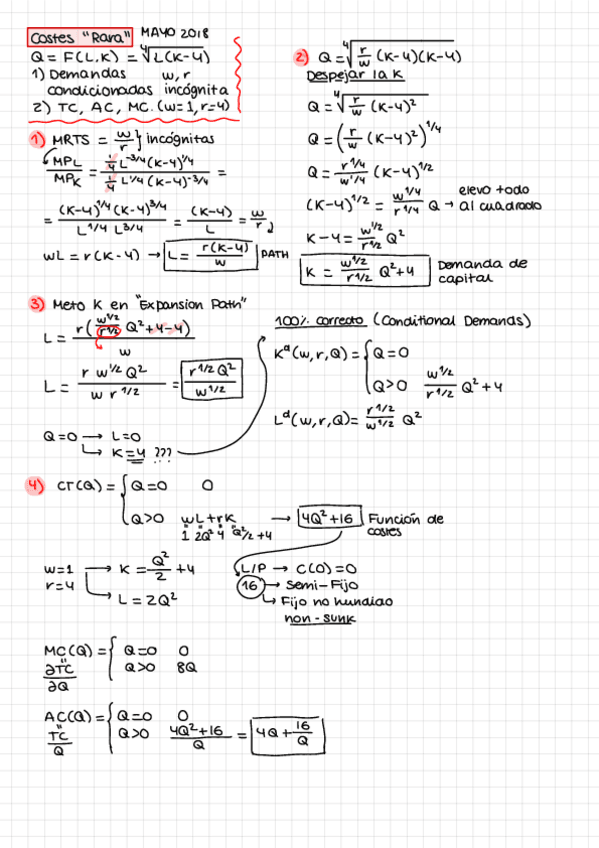 Costes "Rara" MAYO 2018
Q = F(L,K) = ⁴√L(K-4)
1) Demandas w, r
condicionadas incógnita
2) TC, AC, MC. (w=1, r=4)
1) MRTS = w/r } incógnitas
MPL/MPK = (1/4 L^-3/4 (K-4)^1/4)/(1/4 L^1/4 (K-4)^-3/4) =
= ((K-4)^1/4 (K-4)^3/4)/(L^1/4 L^3/4) = (K-4)/L = w/r
wL = r(K-4) → L = r(K-4)/w PATH
2) Q = ⁴√(r/w (K-4)(K-4))
Despejar la K
Q = ⁴√(r/w (K-4)²)
Q = (r/w (K-4)²)^1/4
Q = r^1/4/w^1/4 (K-4)^1/2
(K-4)^1/2 = w^1/4/r^1/4 Q → elevo todo al cuadrado
K-4 = w^1/2/r^1/2 Q²
K = w^1/2/r^1/2 Q²+4 Demanda de capital
3) Meto K en "Expansion Path"
L = r(w^1/2/r^1/2 Q²+4-4)/w
L = r w^1/2 Q²/w r^1/2 = r^1/2 Q²/w^1/2
Q=0 → L=0
↳ K=4 ???
100% correcto (Conditional Demands)
K^d(w,r,Q) = { Q=0
Q>0 w^1/2/r^1/2 Q²+4
L^d(w,r,Q) = r^1/2/w^1/2 Q²
4) CT(Q) = { Q=0 0
Q>0 wL+rK → 4Q²+16 Función de costes
1 2Q² 4 Q²/2 +4
w=1 → K = Q²/2 +4
r=4 ↳ L = 2Q²
L/P → C(0)=0
16 → Semi-Fijo
↳ Fijo no hundido
non-sunk
MC(Q) = { Q=0 0
" Q>0 8Q
∂TC/∂Q
AC(Q) = { Q=0 0
" Q>0 4Q²+16/Q = 4Q + 16/Q
TC/Q